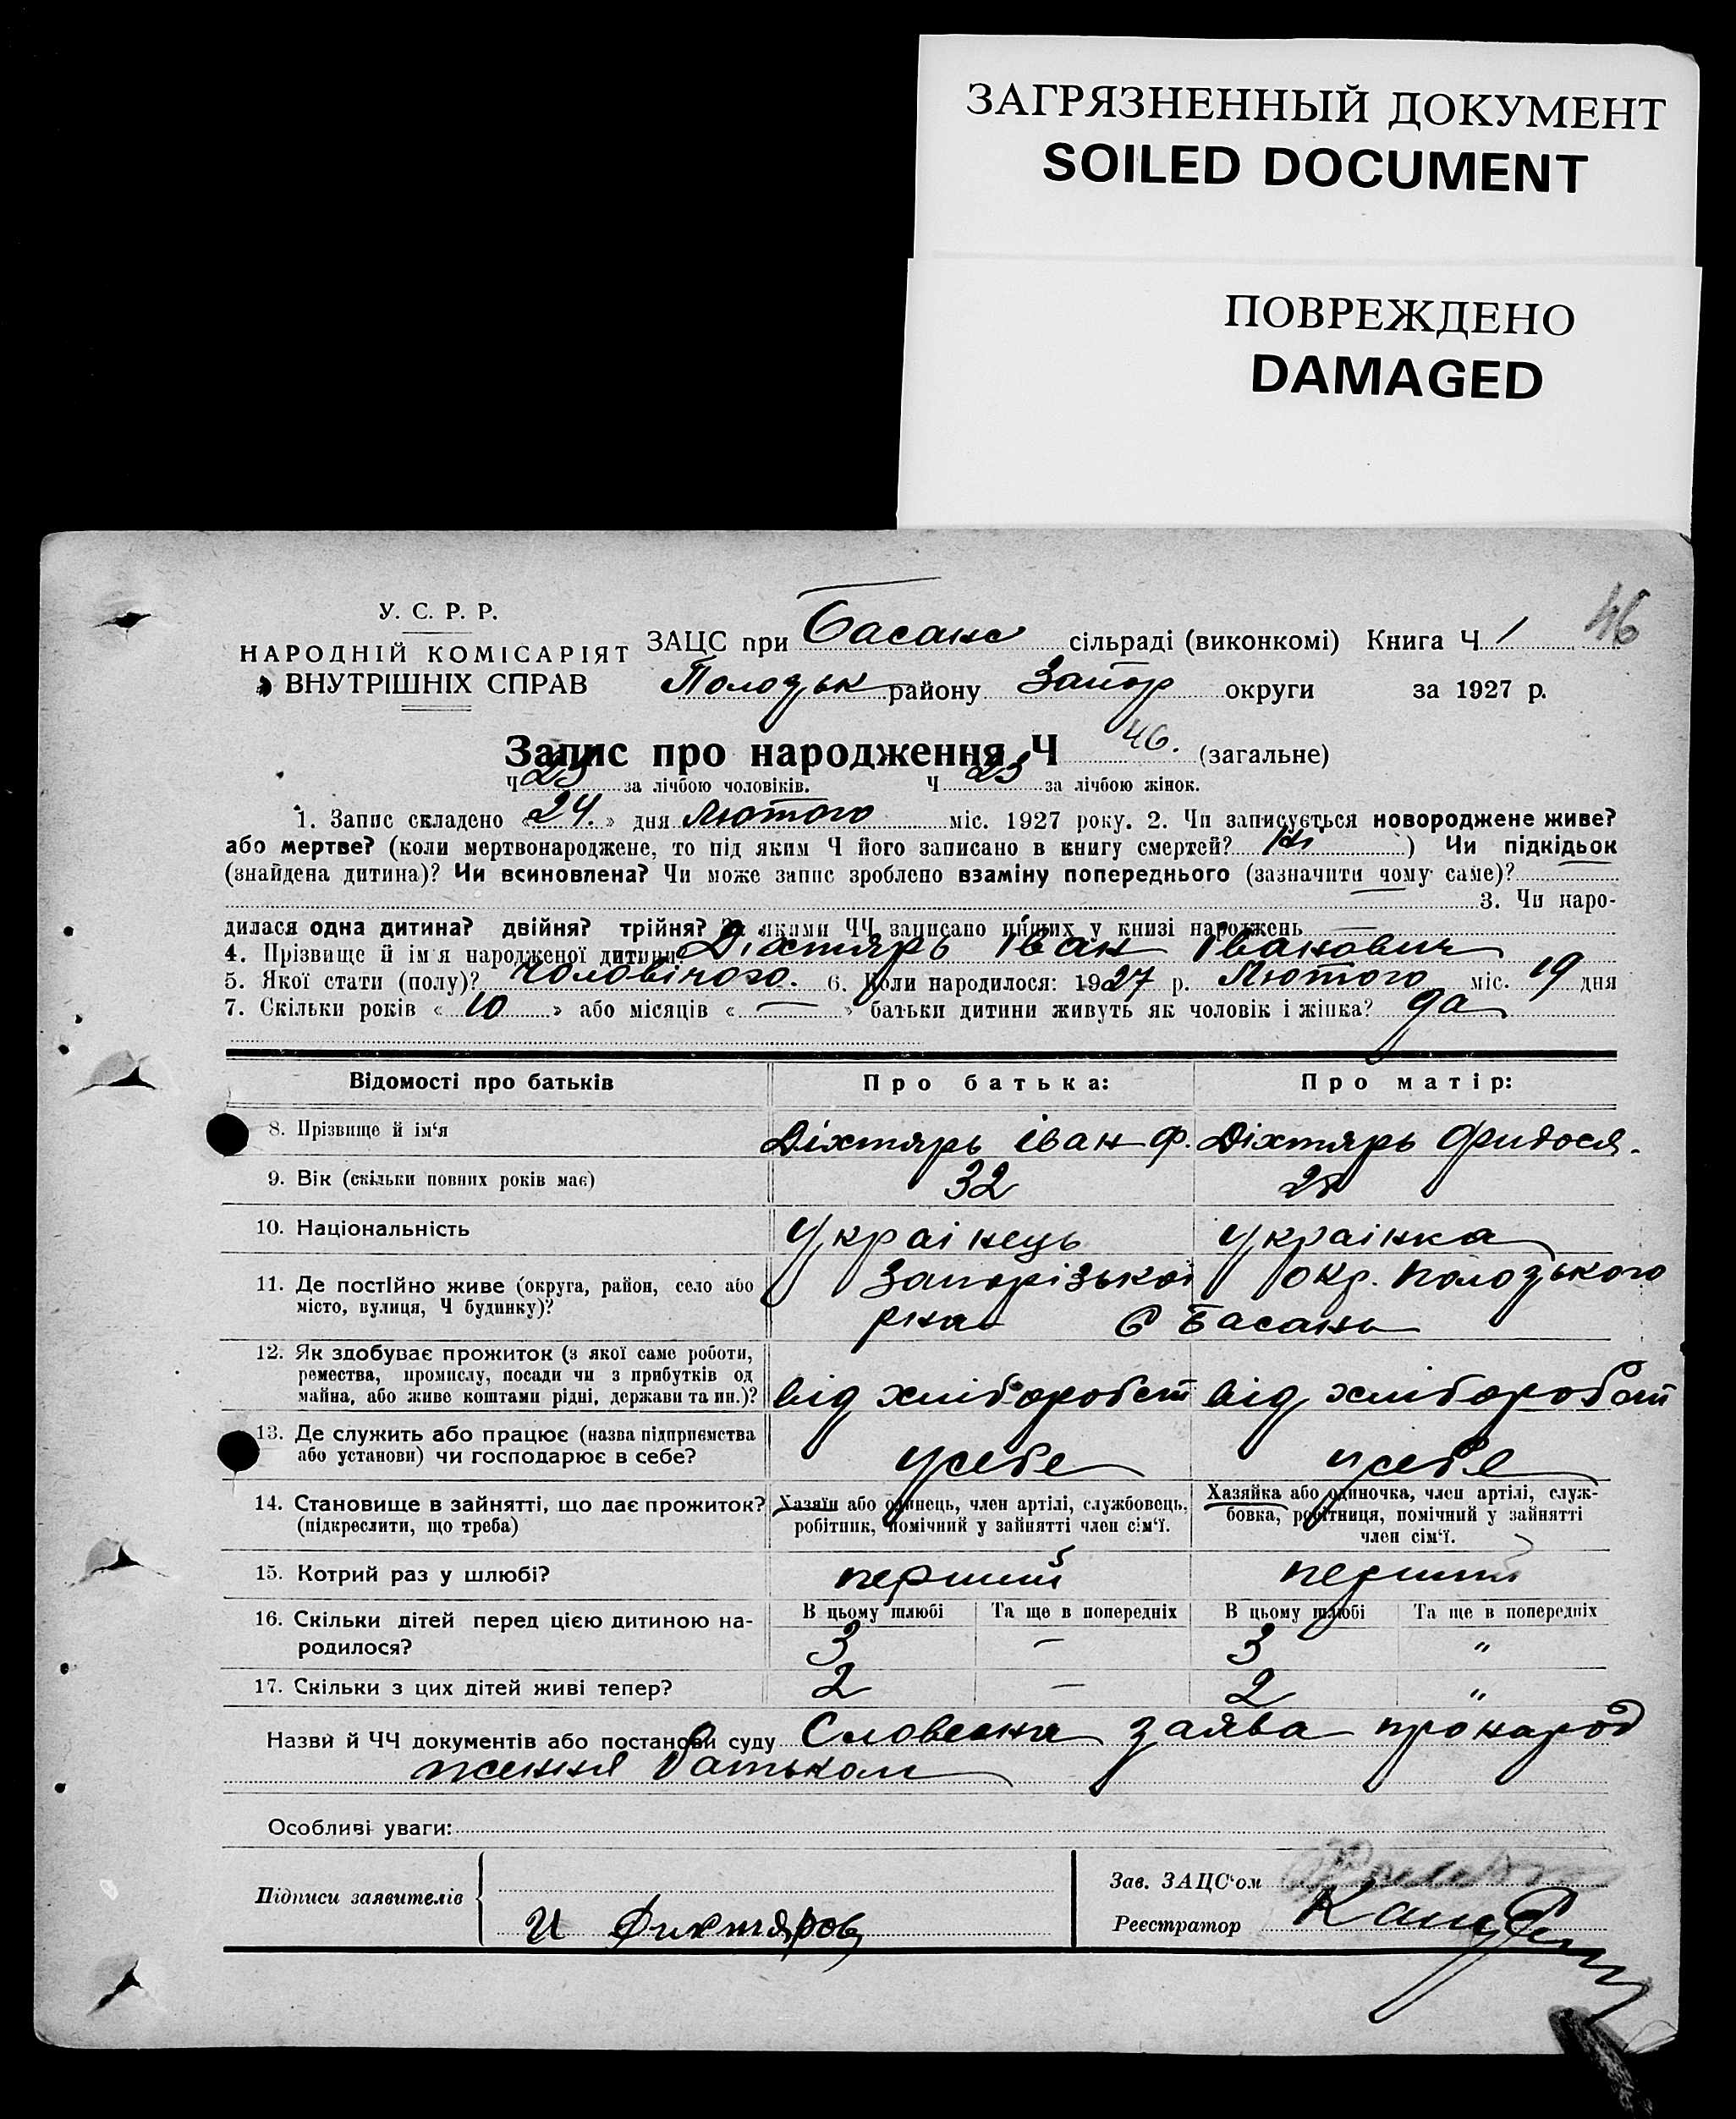 ЗАГРЯЗНЕННЫЙ ДОКУМЕНТ
SOILED DOCUMENT
ПОВРЕЖДЕНО
DAMAGED
46
У. С. Р. Р.
НАРОДНІЙ КОМІСАРІЯТ
ВНУТРІШНІХ СПРАВ
ЗАЦС при Басанс сільраді (виконкомі) Книга Ч 1
Пологьк району Запор округи за 1927 р.
Запис про народження Ч 46. (загальне)
Ч 23 за лічбою чоловіків. Ч 23 за лічбою жінок.
1. Запис складено « 24. » дня Лютого міс. 1927 року. 2. Чи записується новороджене живе?
або мертве? (коли мертвонароджене, то під яким Ч його записано в книгу смертей? ) Чи підкідьок
(знайдена дитина)? Чи всиновлена? Чи може запис зроблено взаміну попереднього (зазначити чому саме)? —
— 3. Чи наро-
дилася одна дитина? двійня? трійня? За якими ЧЧ записано инших у книзі народжень —
4. Прізвище й ім'я народженої дитини Діхтярь Іван Іванович
5. Якої стати (полу)? чоловічого. 6. Коли народилося: 1927 р. Лютого міс. 19 дня
7. Скільки років « 10 » або місяців « — » батьки дитини живуть як чоловік і жінка? да
Відомості про батьків Про батька: Про матір:
8. Прізвище й ім'я Діхтярь Іван Ф. Діхтярь Фидося.
9. Вік (скільки повних років має) 32
10. Національність Українець Українка
11. Де постійно живе (округа, район, село або Запорізької окр. Пологького
місто, вулиця, Ч будинку)? р-на с Басань
12. Як здобуває прожиток (з якої саме роботи,
ремества, промислу, посади чи з прибутків од
майна, або живе коштами рідні, держави та ин.)? від хліборобст від хліборобст
13. Де служить або працює (назва підприємства
або установи) чи господарює в себе? усебе усебе
14. Становище в зайнятті, що дає прожиток? Хазяїн або одинець, член артілі, службовець, Хазяйка або одиночка, член артілі, служ-
(підкреслити, що треба) робітник, помічний у зайнятті член сім'ї. бовка, робітниця, помічний у зайнятті
член сім'ї.
15. Котрий раз у шлюбі? перший перший
16. Скільки дітей перед цією дитиною на- В цьому шлюбі Та ще в попередніх В цьому шлюбі Та ще в попередніх
родилося? 3 — 3 "
17. Скільки з цих дітей живі тепер? 2 — 2 "
Назви й ЧЧ документів або постанови суду Словесна заява про народ
ження батьком
Особливі уваги:
Зав. ЗАЦС'ом
Підписи заявителів
И Дихтяров Реєстратор